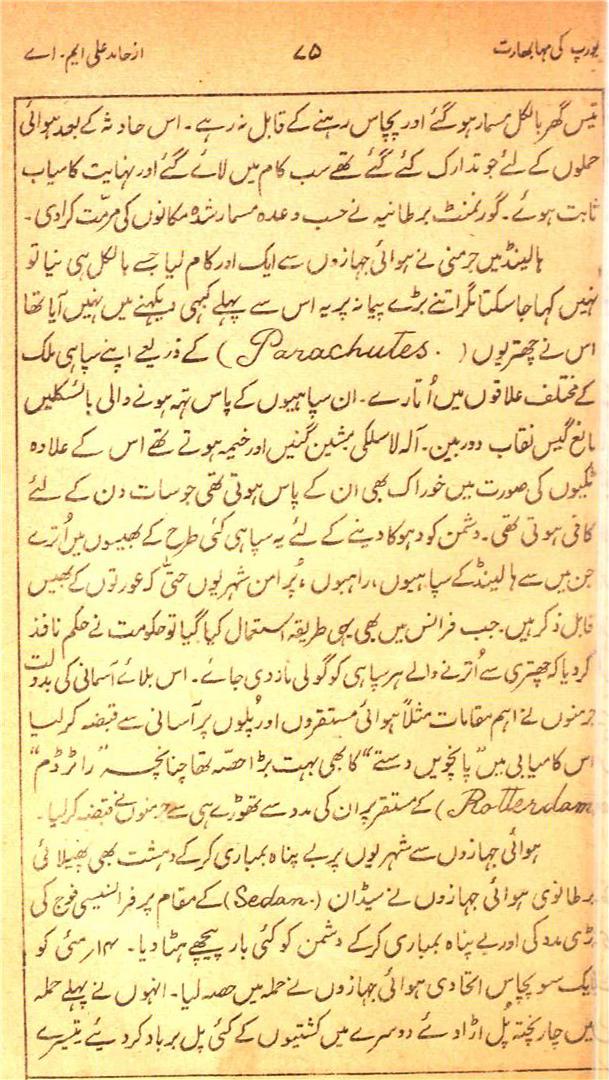 یورپ کی مہابھارت ۷۵ از حامد علی ایم۔ اے
تیس گھر بالکل مسمار ہوگئے اور پچاس رہنے کے قابل نہ رہے۔ اس حادثہ کے بعد ہوائی
حملوں کے لئے جو تدارک کئے گئے تھے سب کام میں لائے گئے اور نہایت کامیاب
ثابت ہوئے۔ گورنمنٹ برطانیہ نے حسب وعدہ مسمار شدہ مکانوں کی مرمّت کرا دی۔
ہالینڈ میں جرمنی نے ہوائی جہازوں سے ایک اور کام لیا جسے بالکل ہی نیا تو
نہیں کہا جا سکتا مگر اتنے بڑے پیمانہ پر یہ اس سے پہلے کبھی دیکھنے میں نہیں آیا تھا
اس نے چھتریوں (Parachutes.) کے ذریعے اپنے سپاہی ملک
کے مختلف علاقوں میں اُتارے۔ ان سپاہیوں کے پاس تہہ ہونے والی بائسکلیں
مانع گیس نقاب دوربین۔ آلہ لاسلکی مشین گنیں اور خیمہ ہوتے تھے اس کے علاوہ
ٹکیوں کی صورت میں خوراک بھی ان کے پاس ہوتی تھی جو سات دن کے لئے
کافی ہوتی تھی۔ دشمن کو دہوکا دینے کے لئے یہ سپاہی کئی طرح کے بھیسوں میں اُترے
جن میں سے ہالینڈ کے سپاہیوں، راہبوں، پُر امن شہریوں حتّٰی کہ عورتوں کے بھیس
قابل ذکر ہیں۔ جب فرانس میں بھی یہی طریقہ استعمال کیا گیا تو حکومت نے حکم نافذ
کر دیا کہ چھتری سے اُترنے والے ہر سپاہی کو گولی مار دی جائے۔ اس بلائے آسمانی کی بدولت
جرمنوں نے اہم مقامات مثلاً ہوائی مستقروں اور پُلوں پر آسانی سے قبضہ کر لیا
اس کامیابی میں ”پانچویں دستے“ کا بھی بہت بڑا حصّہ تھا چنانچہ ”راٹرڈم“
(Rotterdam) کے مستقر پر ان کی مدد سے تھوڑے ہی سے جرمنوں نے قبضہ کر لیا۔
ہوائی جہازوں سے شہریوں پر بے پناہ بمباری کر کے دہشت بھی پھیلائی
برطانوی ہوائی جہازوں نے سیڈان (Sedan.) کے مقام پر فرانسیسی فوج کی
بڑی مدد کی اور بے پناہ بمباری کر کے دشمن کو کئی بار پیچھے ہٹا دیا۔ ۱۴؍ مئی کو
ایک سو پچاس اتحادی ہوائی جہازوں نے حملہ میں حصہ لیا۔ انہوں نے پہلے حملہ
میں چار پختہ پُل اڑا دئے دوسرے میں کشتیوں کے کئی پل برباد کر دیئے تیسرے